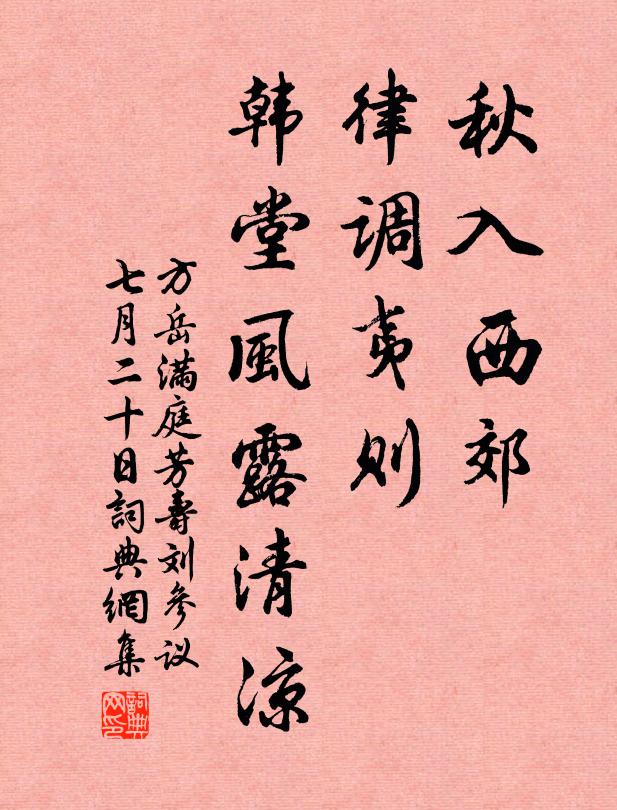 秋入西郊
律调夷则
韩堂風露清涼
方岳滿庭芳壽刘參议
七月二十日詞典網集
詞典网印